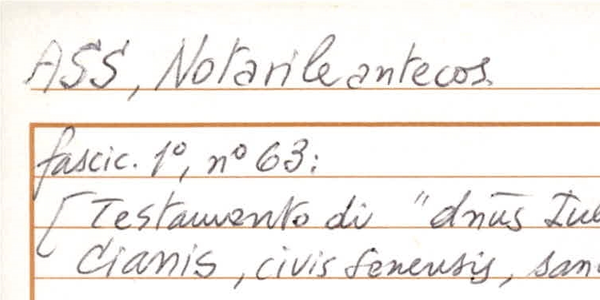 ASS, Notarile antecos.
fascic. 1º, nº 63:
[Testamento di "dnūs Iul
Cianis, civis senensis, san